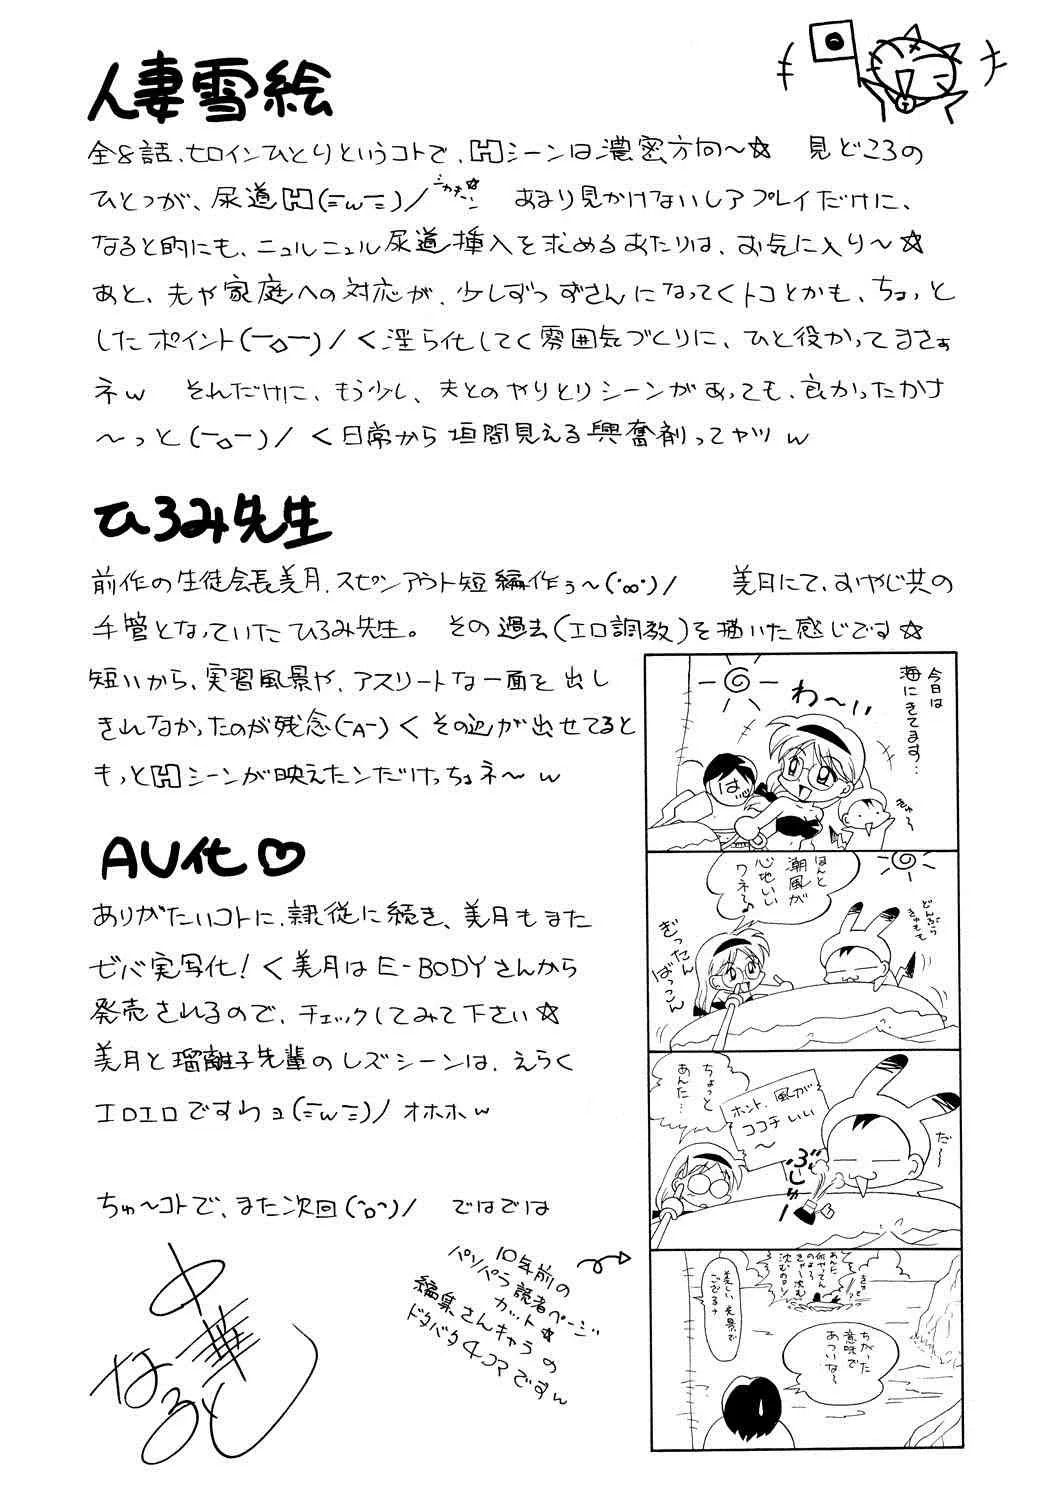 人妻雪絵
全8話、ヒロインひとりというコトで、Hシーンは濃密方向～☆ 見どころの
ひとつが、尿道H(ﾆwﾆ)/ ジャキーン☆ あまり見かけないレアプレイだけに、
なると的にも、ニュルニュル尿道挿入を求めるあたりは、お気に入り～☆
あと、夫や家庭への対応が、少しずつずさんになってくトコとかも、ちょっと
したポイント(￣ο￣)/ く淫ら化してく雰囲気づくりに、ひと役かってまさぁ
ネw それだけに、もう少し、夫とのやりとりシーンがあっても、良かったかナ
～っと(￣ο￣)/ く日常から垣間見える興奮剤ってヤツw
ひろみ先生
前作の生徒会長美月、スピンアウト短編作ぅ～(・∞・)/ 美月にて、おやじ共の
手管となっていたひろみ先生。その過去(エロ調教)を描いた感じです☆
短いから、実習風景や、アスリートな一面を出し
きれなかったのが残念(ｰAｰ) くその辺が出せてると
もっとHシーンが映えたンだけっちょネ～w
AV化♡
ありがたいコトに、隷従に続き、美月もまた
ゼバ実写化! く美月はE-BODYさんから
発売されるので、チェックしてみて下さい☆
美月と瑠離子先輩のレズシーンは、えらく
エロエロですわョ(ﾆwﾆ)/ オホホw
ちゅ～コトで、また次回(^o^)/ ではでは
中華
なると
10年前の
パソパラ読者ページ
カット☆
編集さんキャラの
ドタバタ4コマですw
今日は
海にきてます…
わ～い
は…
きゃ～
ほんと
潮風が
心地いい
ワネ～♪
どんぶら
ぎったん
ばっこん
だ～
ホント、風が
ココチいい
～
ちょっと
あんた…
ぶしゅー
あんた
何やってん
のよ～
きゃ～沈む
沈むのョ
美しい光景で
ござるナ
ちがった
意味で
あついな～